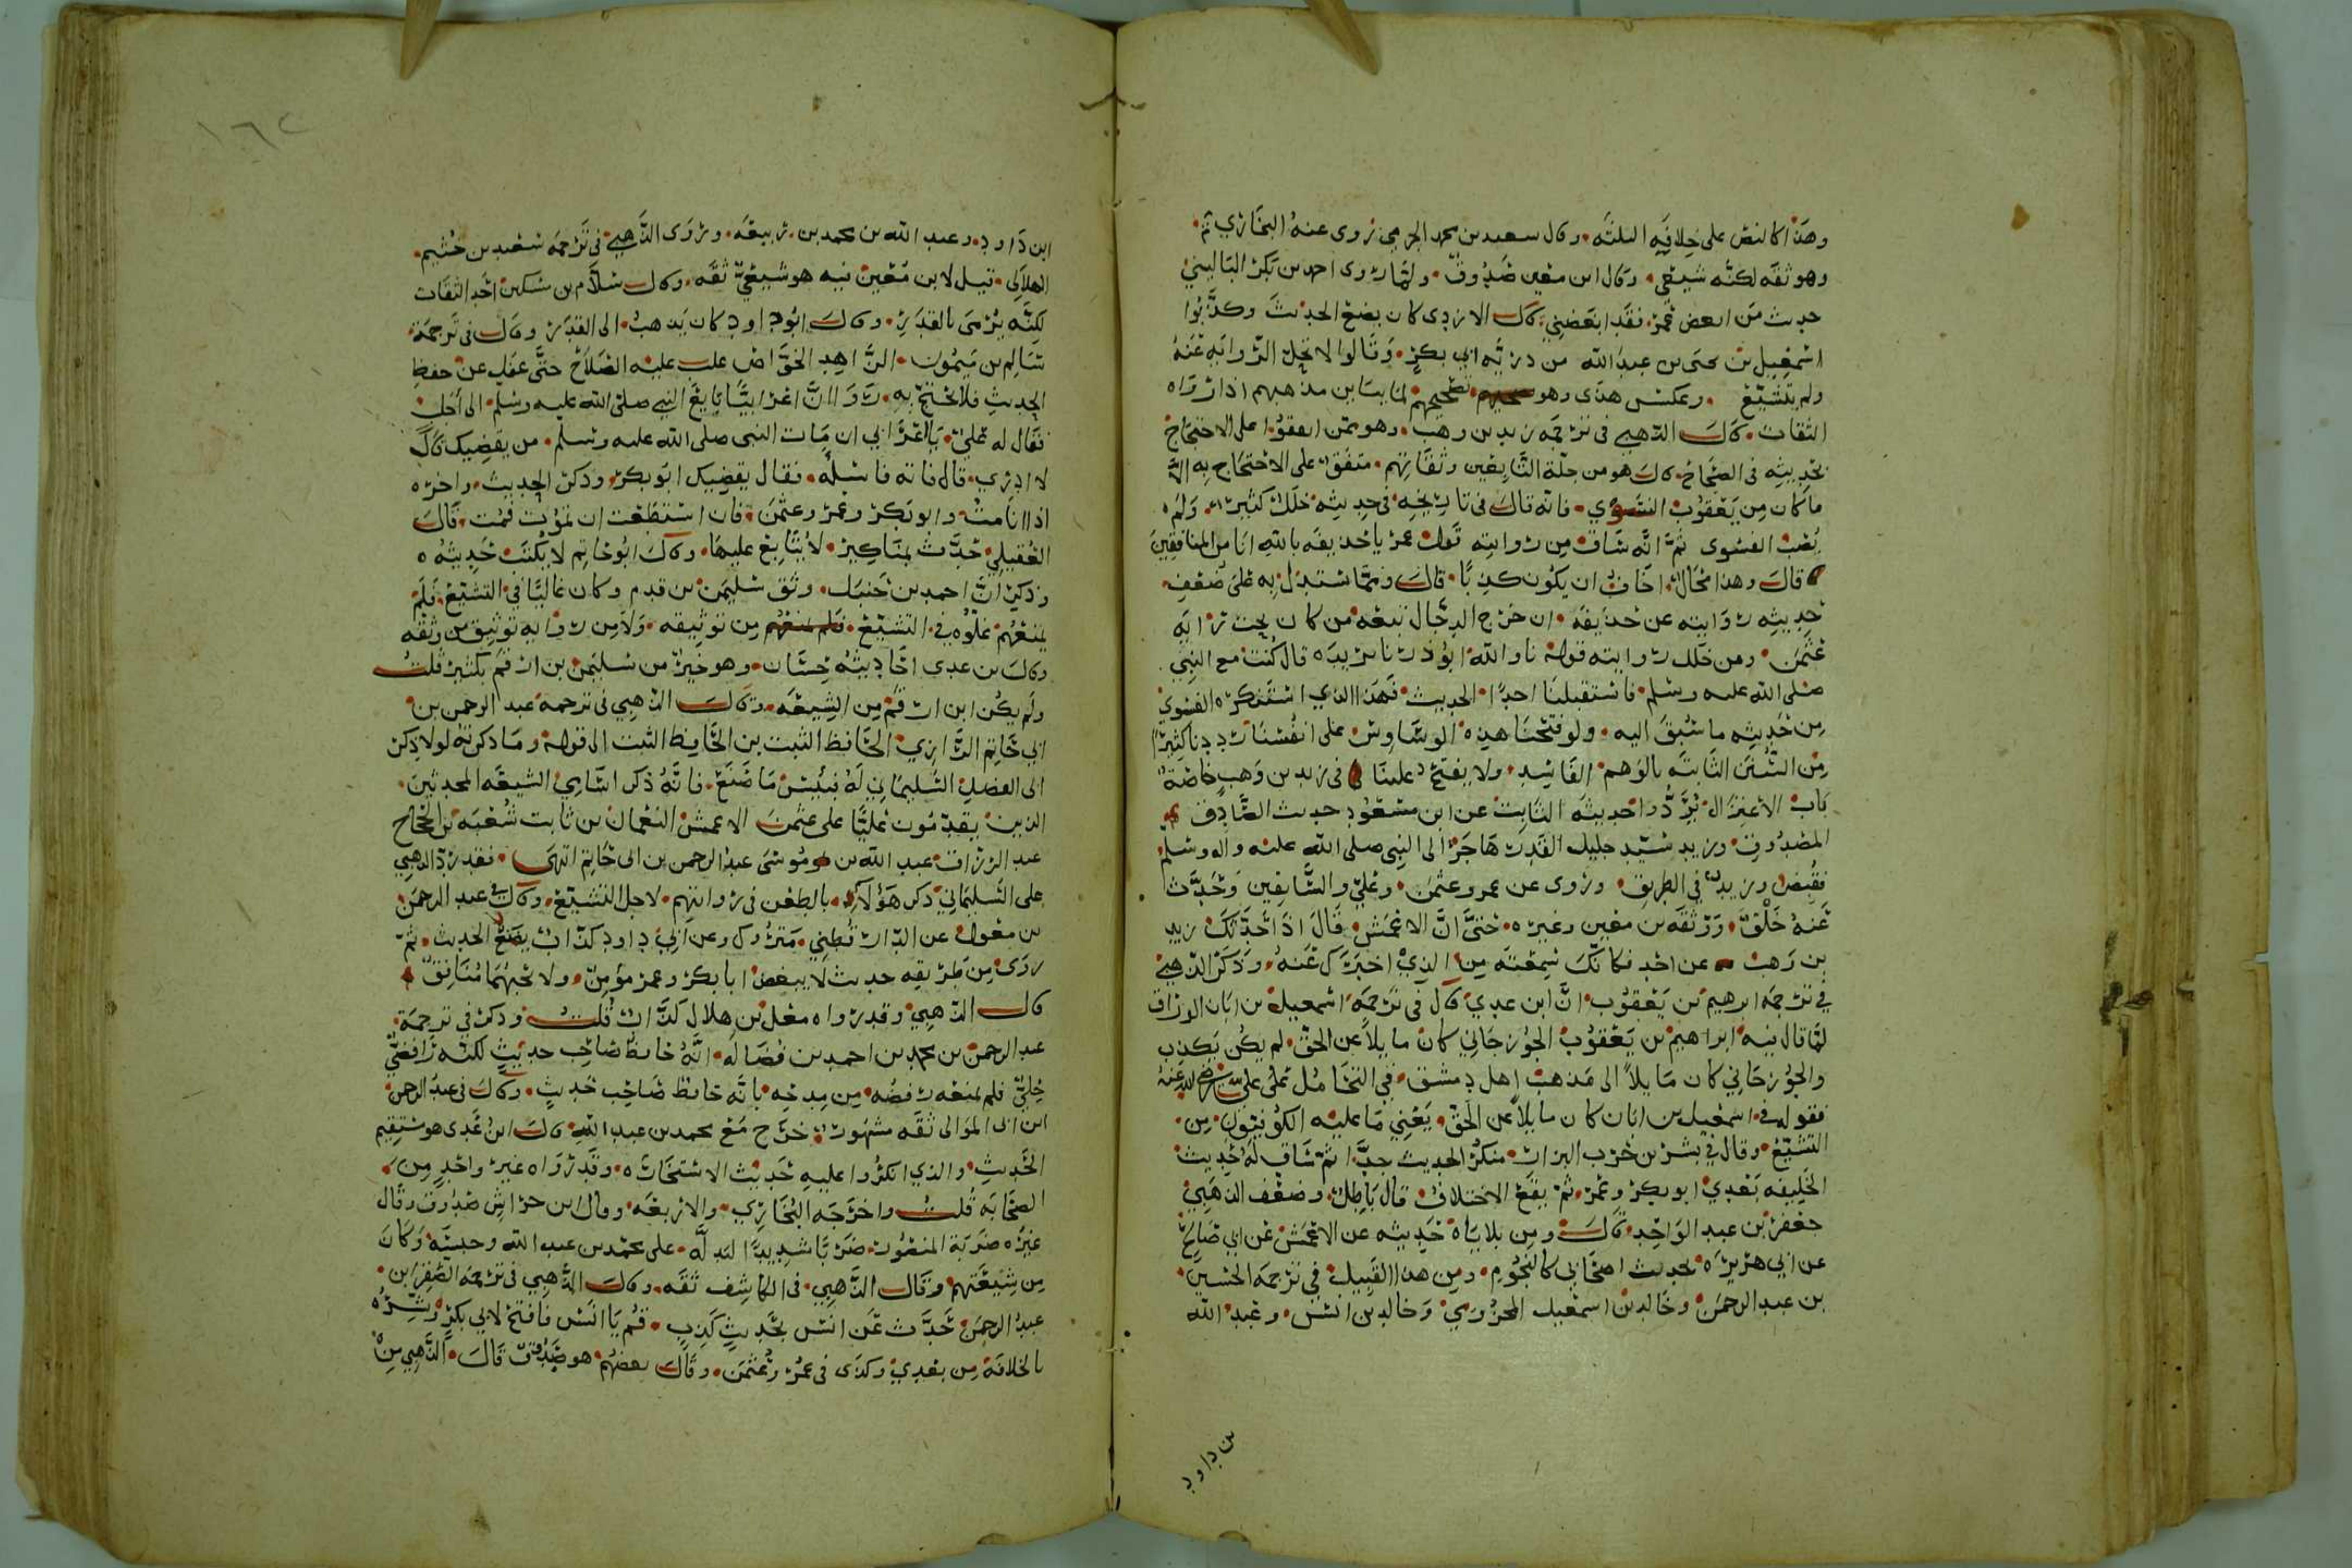 وهذا كالنص على خلافيه الثلثه وقال سعيد بن محمد الجرمي روى عنه البخاري ثم
وهو ثقه لكنه شيعي وقال ابن معين صدوق ولما روى احمد بن بكر البالسي
حديث من ابغض عمر فقد ابغضني قال الازدي كان يضع الحديث وكذبوا
اسمعيل بن يحيى بن عبد الله من ذريه ابي بكر وقالوا لا تحل الروايه عنه
ولم يتشيع وعكس هذى وهو تصحيحهم لما يباين مذهبهم اذا رواه
الثقات قال الذهبي في ترجمه زيد بن وهب وهو ممن اتفقوا على الاحتجاج
بحديثه في الصحاح قال هو من جلة التابعين وثقاتهم متفق على الاحتجاج به الا
ما كان من يعقوب الفسوي فانه قال في تاريخه في حديثه خلل كثير ولم
يصب الفسوي ثم انه ساق من روايته قول عمر يا حذيفه بالله انا من المنافقين
قال وهذا محال اخاف ان يكون كذبا قال ومما يستدل به على ضعف
حديثه روايته عن حذيفه ان خرج الدجال تبعه من كان يحب
عثمن ومن خلل روايته قوله نا والله ابوذر بالربذه قال كنت مع النبي
صلى الله عليه وسلم فاستقبلنا احدا الحديث فهذا الذي استنكره الفسوي
من حديثه ما سبق اليه ولو فتحنا هذه الوساوس على انفسنا رددنا كثيرا
من السنن الثابته بالوهم الفاسد ولا يفتح علينا في زيد بن وهب خاصة
باب الاعتزال نرد حديثه الثابت عن ابن مسعود حديث الصادق
المصدوق وزيد سيد جليل القدر هاجر الى النبي صلى الله عليه واله وسلم
فقبض وزيد في الطريق وروى عن عمر وعثمن وعلي والسابقين وحدث
عنه خلق ووثقه بن معين وغيره حتى ان الاعمش قال اذا حدثك زيد
بن وهب عن احد فكانك سمعته من الذي اخبرك عنه وذكر الذهبي
في ترجمه ابرهيم بن يعقوب ان ابن عدي قال في ترجمة اسمعيل بن ابان الوراق
لما قال فيه ابراهيم بن يعقوب الجوزجاني كان مايلا عن الحق لم يكن يكذب
والجوزجاني كان مايلا الى مذهب اهل دمشق في التحامل على علي رضي الله عنه
فقوله في اسمعيل بن ابان كان مايلا عن الحق يعني ما عليه الكوفيون من
التشيع وقال في بشر بن حرب البزاز منكر الحديث جدا ثم ساق له حديث
الخليفه بعدي ابو بكر وعمر ثم يقع الاختلاف قال باطل وضعف الذهبي
جعفر بن عبد الواحد قال ومن بلاياه حديثه عن الاعمش عن ابي صالح
عن ابي هريره حديث اصحابي كالنجوم ومن هذا القبيل في ترجمة الحسين
بن عبد الرحمن وخالد بن اسمعيل المخزومي وخالد بن انس وعبد الله
بن داود
١٦٢
ابن داود وعبد الله بن محمد بن ربيعه وروى الذهبي في ترجمه سعيد بن خثيم
الهلالي قيل لابن معين فيه هو شيعي ثقه وقال سلام بن مسكين احد الثقات
لكنه يرمى بالقدر وقال ابو داود كان يذهب الى القدر وقال في ترجمة
سالم بن ميمون الزاهد الخواص غلب عليه الصلاح حتى غفل عن حفظ
الحديث فلا يحتج به روى ان اعرابيا بايع النبي صلى الله عليه وسلم الى اجل
فقال له علي يا اعرابي ان مات النبي صلى الله عليه وسلم من يقضيك قال
لا ادري قال فاته فاسئله فقال يقضيك ابو بكر وذكر الحديث واخره
اذا انا مت وابو بكر وعمر وعثمن فان استطعت ان تموت فمت قال
العقيلي حدث بمناكير لا يتابع عليها وقال ابو حاتم لا يكتب حديثه
وذكر ان احمد بن حنبل وثق سليمن بن قرم وكان غاليا في التشيع فلم
يمنعهم غلوه في التشيع من توثيقه ولا من روايه توثيق من وثقه
وقال بن عدي احاديثه حسان وهو خير من سليمن بن ارقم بكثير قلت
ولم يكن ابن ارقم من الشيعه وقال الذهبي في ترجمة عبد الرحمن بن
ابي حاتم الرازي الحافظ الثبت بن الحافظ الثبت الى قوله وما ذكرته لولا ذكر
ابي الفضل السليماني له فبئس ما صنع فانه ذكر اسامي الشيعه المحدثين
الذين يقدمون عليا على عثمن الاعمش النعمان بن ثابت شعبه بن الحجاج
عبد الرزاق عبد الله بن موسى عبد الرحمن بن ابي حاتم انتهى فقد رد الذهبي
على السليماني ذكر هؤلاء بالطعن في روايتهم لاجل التشيع وقال في عبد الرحمن
بن مغول عن الدارقطني متروك وعن ابي داود كذاب يضع الحديث ثم
روى من طريقه حديث لا يبغض ابا بكر وعمر مؤمن ولا يحبهما منافق
قال الذهبي وقد رواه معلى بن هلال كذاب قلت وذكر في ترجمة
عبد الرحمن بن محمد بن احمد بن فضاله انه حافظ صاحب حديث لكنه رافضي
جلد فلم يمنعه رفضه من مدحه بانه حافظ صاحب حديث وقال في عبد الرحمن
ابن ابي الموالي ثقه مشهور خرج مع محمد بن عبد الله قال ابن عدي هو مستقيم
الحديث والذي انكروا عليه حديث الاستخاره وقد رواه غير واحد من
الصحابه قلت واخرجه البخاري والاربعه وقال ابن خراش صدوق وقال
غيره ضربه المنصور ضربا شديدا ليدله على محمد بن عبد الله وحبسه وكان
من شيعتهم وقال الذهبي في الكاشف ثقه وقال الذهبي في ترجمة الصقر بن
عبد الرحمن حدث عن انس بحديث كذب قم يا انس فافتح لابي بكر وبشره
بالخلافة من بعدي وكذى في عمر وعثمن وقال بعضهم هو صدوق قال الذهبي من